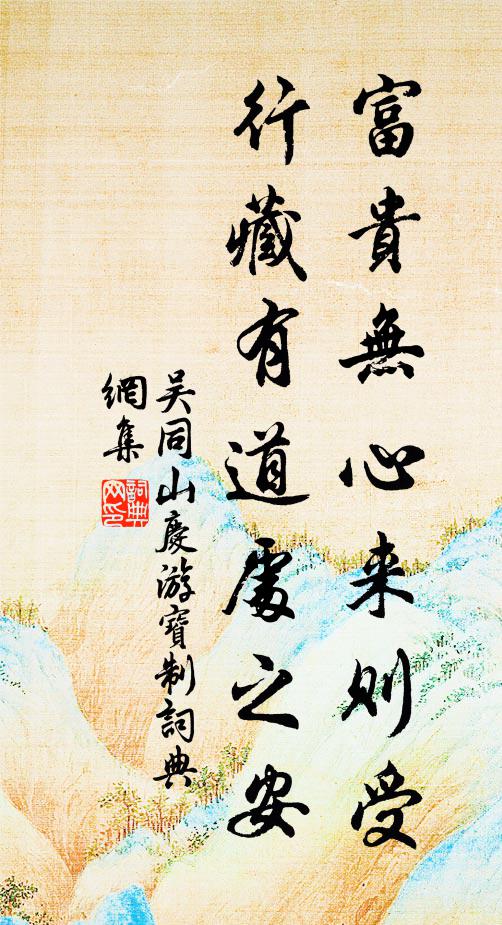 富貴無心来則受
行藏有道處之安
吴同山慶游寶制詞典
網集
詞典
网印